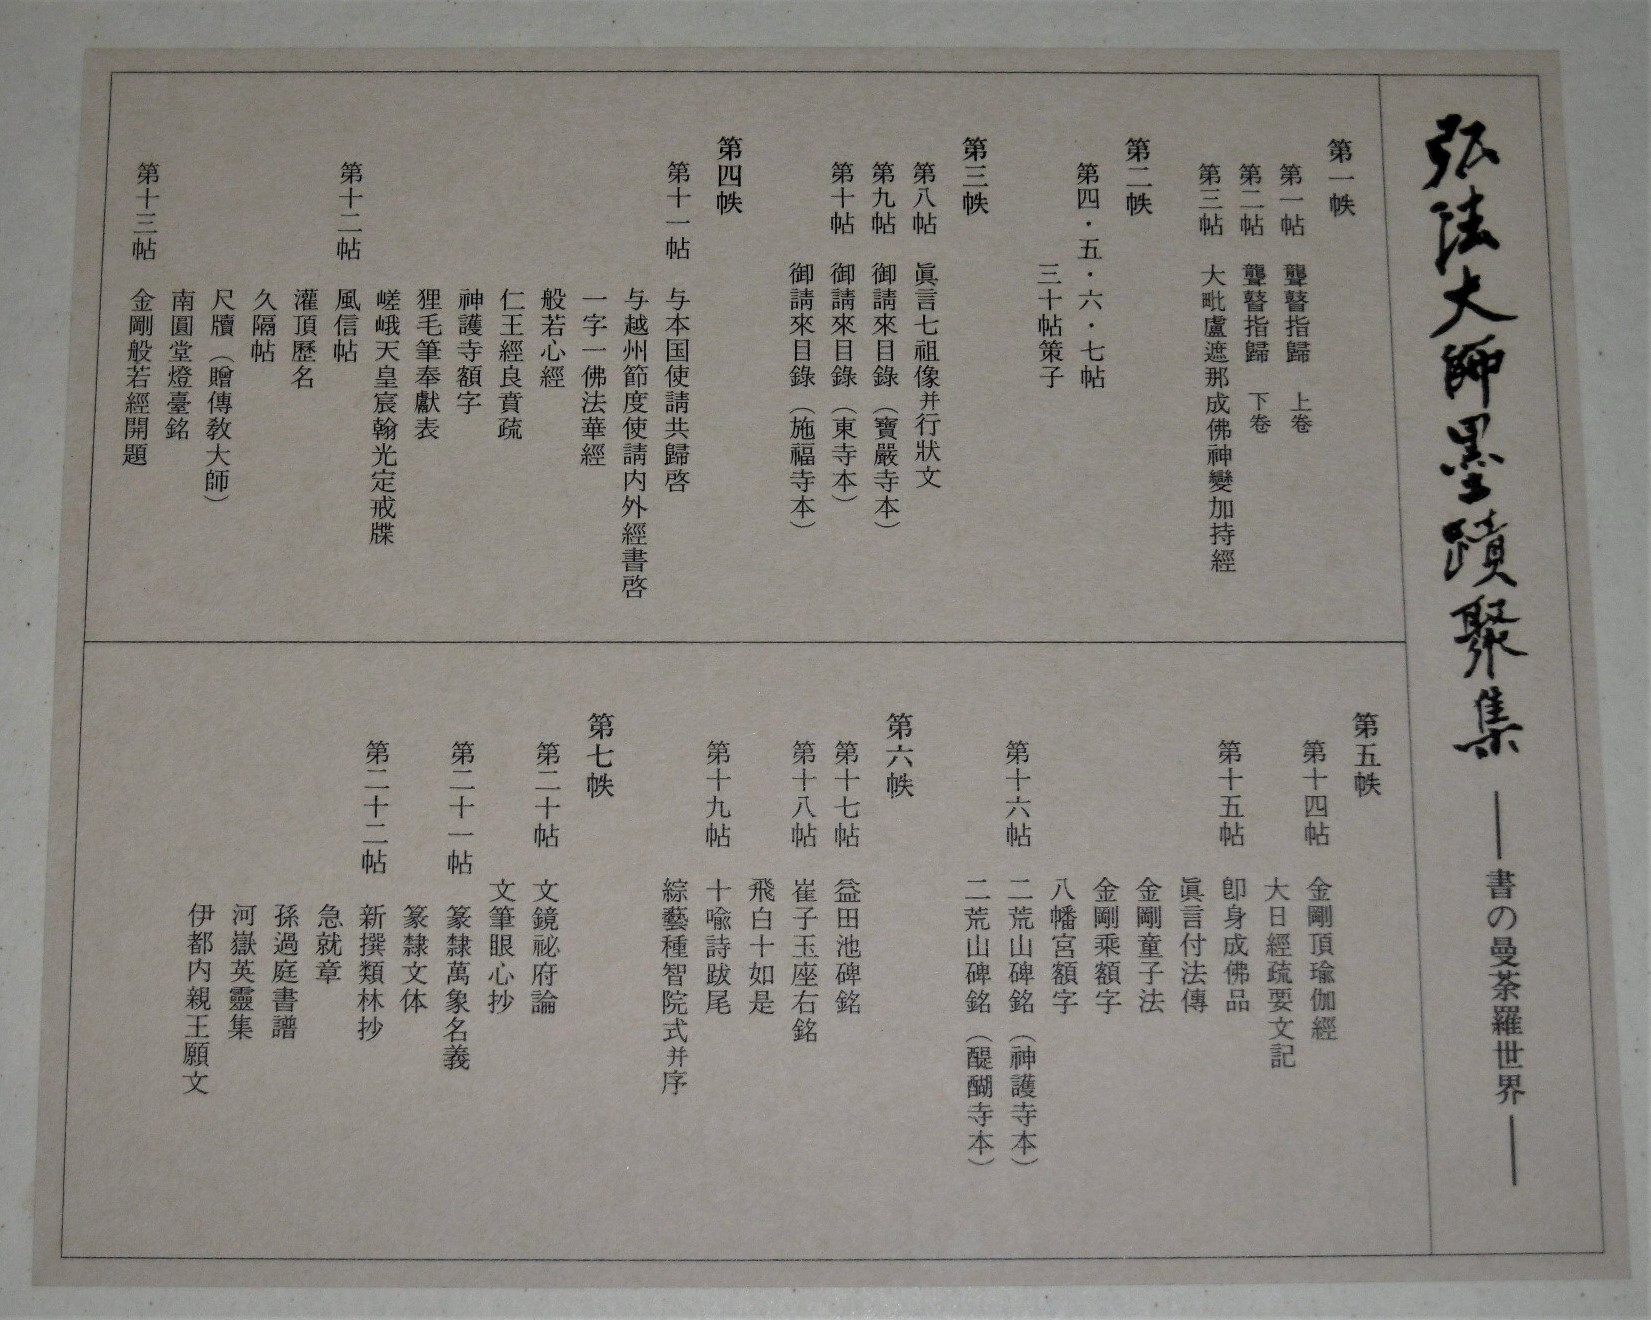 弘法大師墨蹟聚集 ――書の曼荼羅世界――
第一帙
第一帖 聾瞽指歸 上卷
第二帖 聾瞽指歸 下卷
第三帖 大毗盧遮那成佛神變加持經
第二帙
第四・五・六・七帖
三十帖策子
第三帙
第八帖 眞言七祖像并行狀文
第九帖 御請來目錄（寶嚴寺本）
第十帖 御請來目錄（東寺本）
御請來目錄（施福寺本）
第四帙
第十一帖 与本国使請共歸啓
与越州節度使請内外經書啓
一字一佛法華經
般若心經
仁王經良賁疏
神護寺額字
狸毛筆奉獻表
嵯峨天皇宸翰光定戒牒
第十二帖 風信帖
灌頂歷名
久隔帖
尺牘（贈傳敎大師）
南圓堂燈臺銘
第十三帖 金剛般若經開題
第五帙
第十四帖 金剛頂瑜伽經
大日經疏要文記
第十五帖 卽身成佛品
眞言付法傳
金剛童子法
金剛乘額字
八幡宮額字
第十六帖 二荒山碑銘（神護寺本）
二荒山碑銘（醍醐寺本）
第六帙
第十七帖 益田池碑銘
第十八帖 崔子玉座右銘
飛白十如是
第十九帖 十喩詩跋尾
綜藝種智院式并序
第七帙
第二十帖 文鏡祕府論
文筆眼心抄
第二十一帖 篆隸萬象名義
篆隸文体
第二十二帖 新撰類林抄
急就章
孫過庭書譜
河嶽英靈集
伊都内親王願文